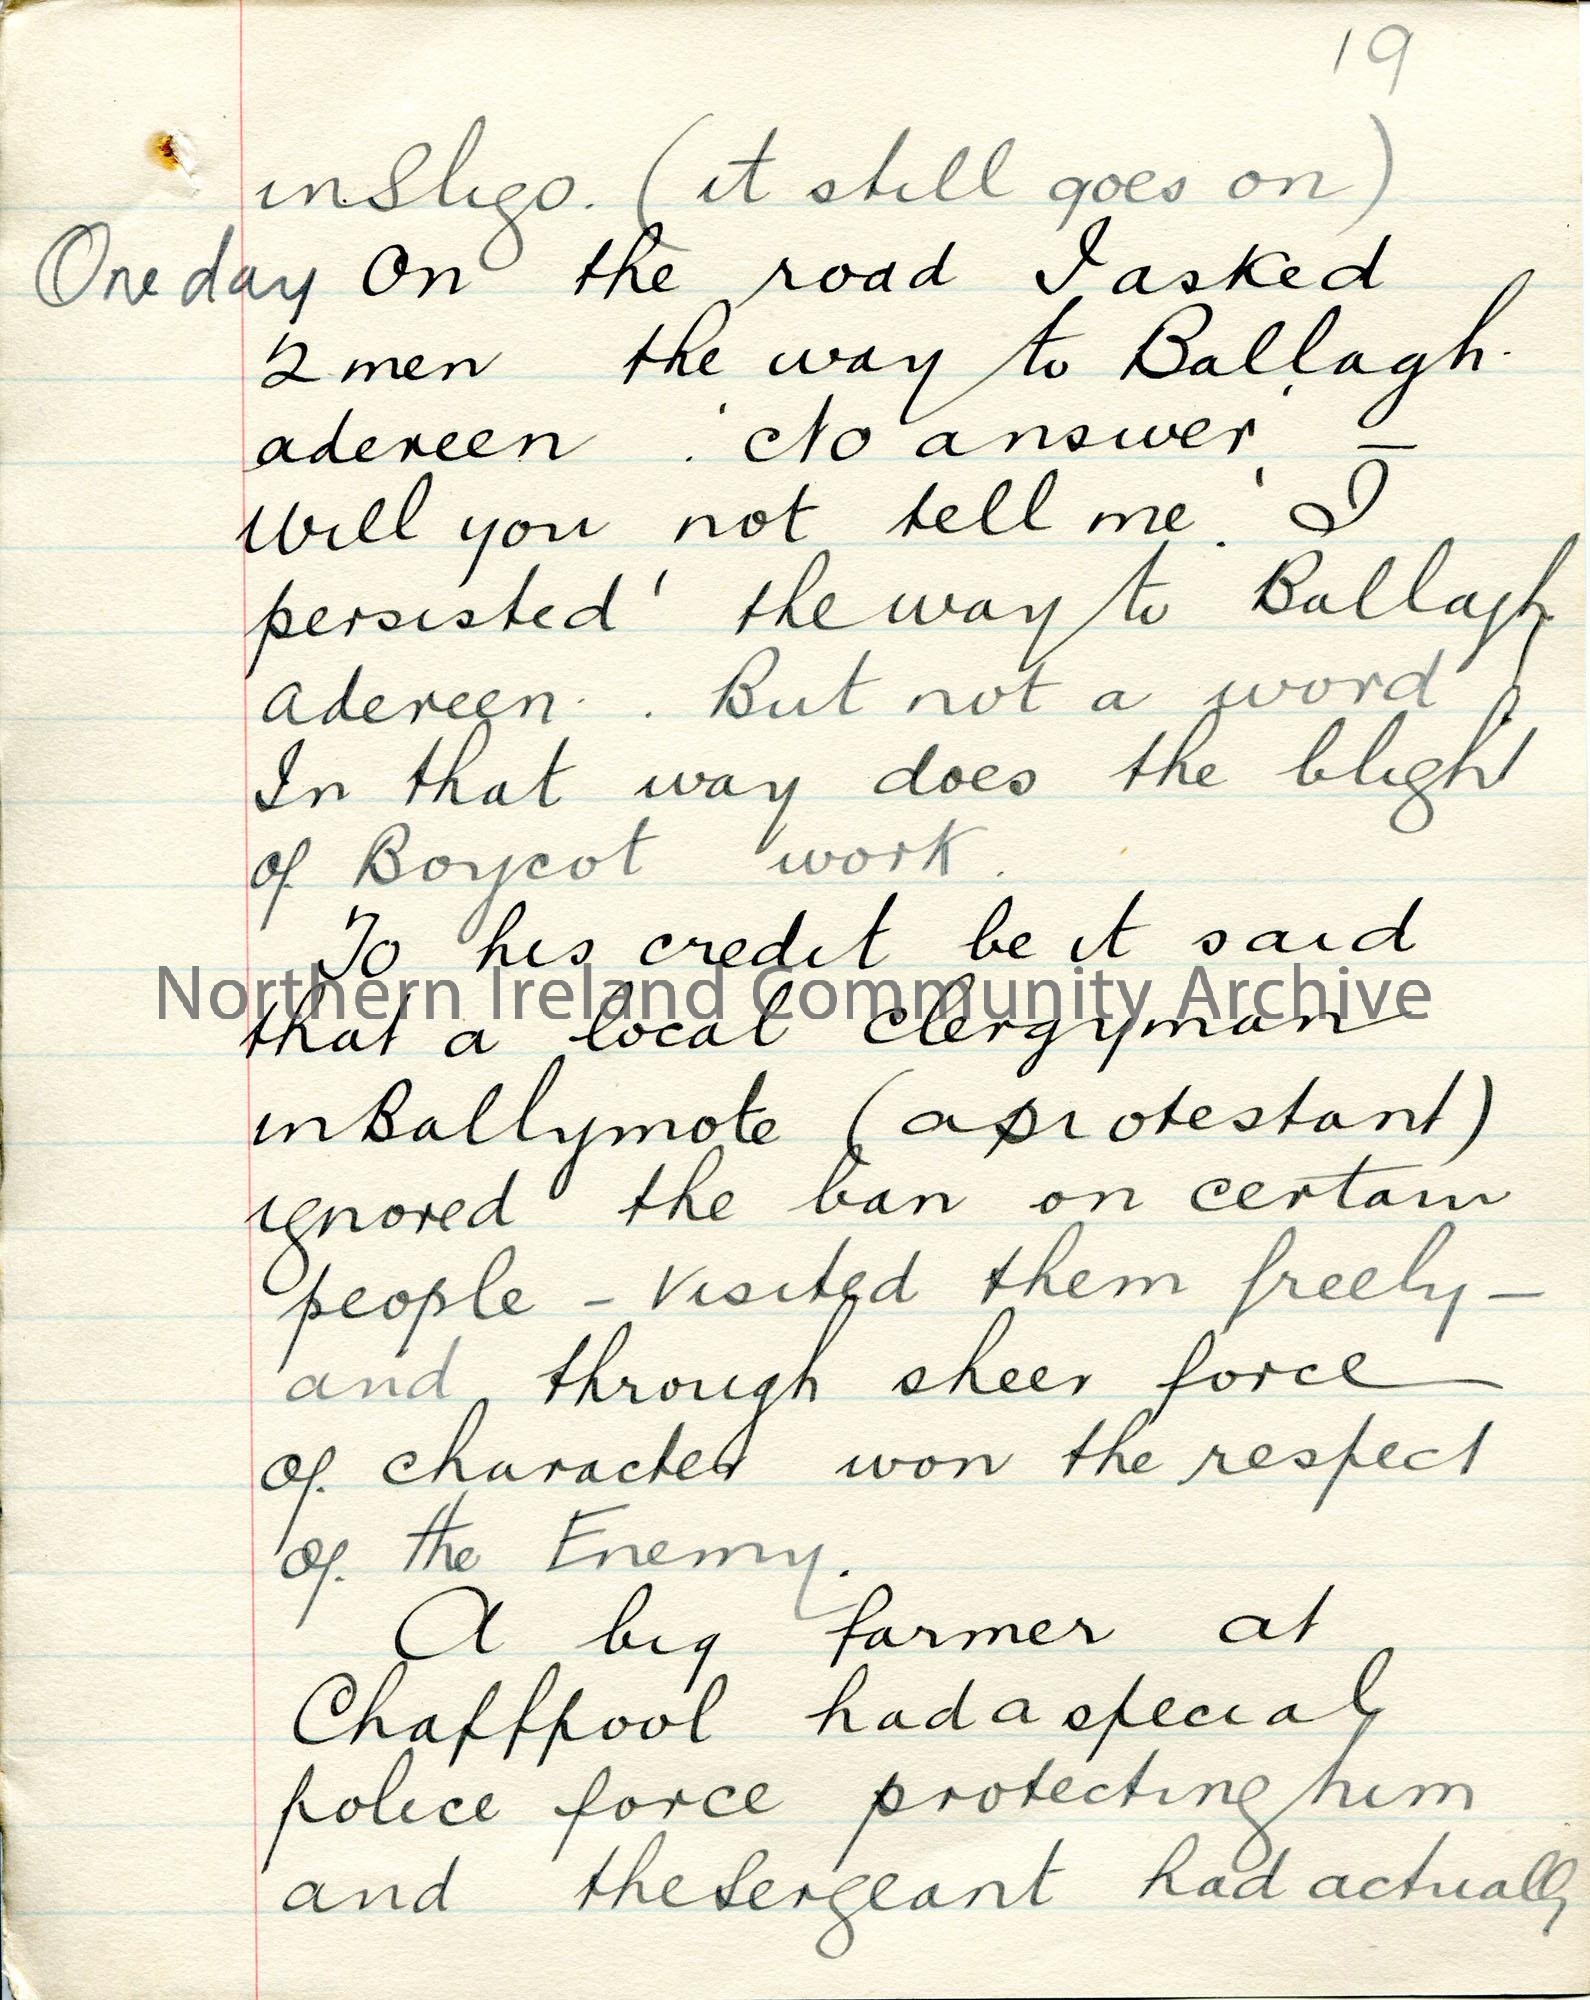 19
in Sligo. (it still goes on)
One day On the road I asked
2 men the way to Ballagh-
adereen. 'No answer' –
Will you not tell me.' I
persisted ' the way to Ballagh
adereen. . But not a word
In that way does the blight
of Boycot work.
To his credit be it said
Northern Ireland Community Archive
that a local clergyman
in Ballymote (a protestant)
ignored the ban on certain
people – visited them freely –
and through sheer force
of character won the respect
of the Enemy.
A big farmer at
Chaffpool had a special
police force protecting him
and the Sergeant had actually